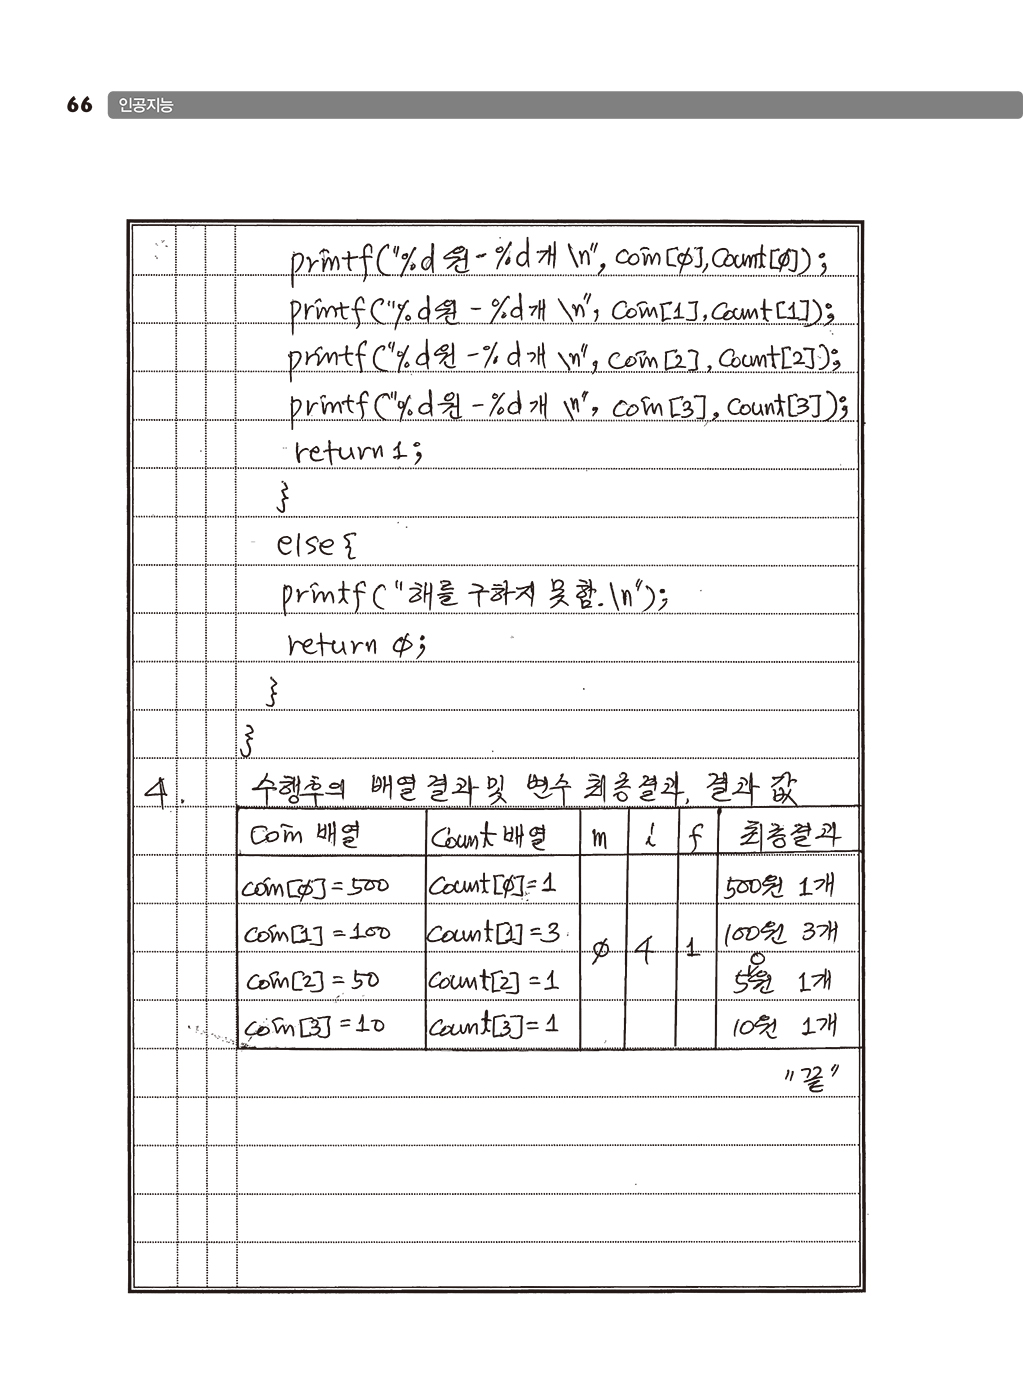 66 인공지능
printf("%d원-%d개 \n", coin[0], count[0]);
printf("%d원 - %d개 \n", coin[1], count[1]);
printf("%d원 -%d개 \n", coin[2], count[2]);
printf("%d원 -%d개 \n", coin[3], count[3]);
return 1;
}
else{
printf("해를 구하지 못함.\n");
return 0;
}
}
4. 수행후의 배열결과 및 변수 최종결과, 결과 값
Coin 배열 Count 배열 m i f 최종결과
coin[0]=500 Count[0]=1 500원 1개
coin[1]=100 Count[1]=3 100원 3개
0 4 1
coin[2]=50 Count[2]=1 50원 1개
coin[3]=10 Count[3]=1 10원 1개
"끝"